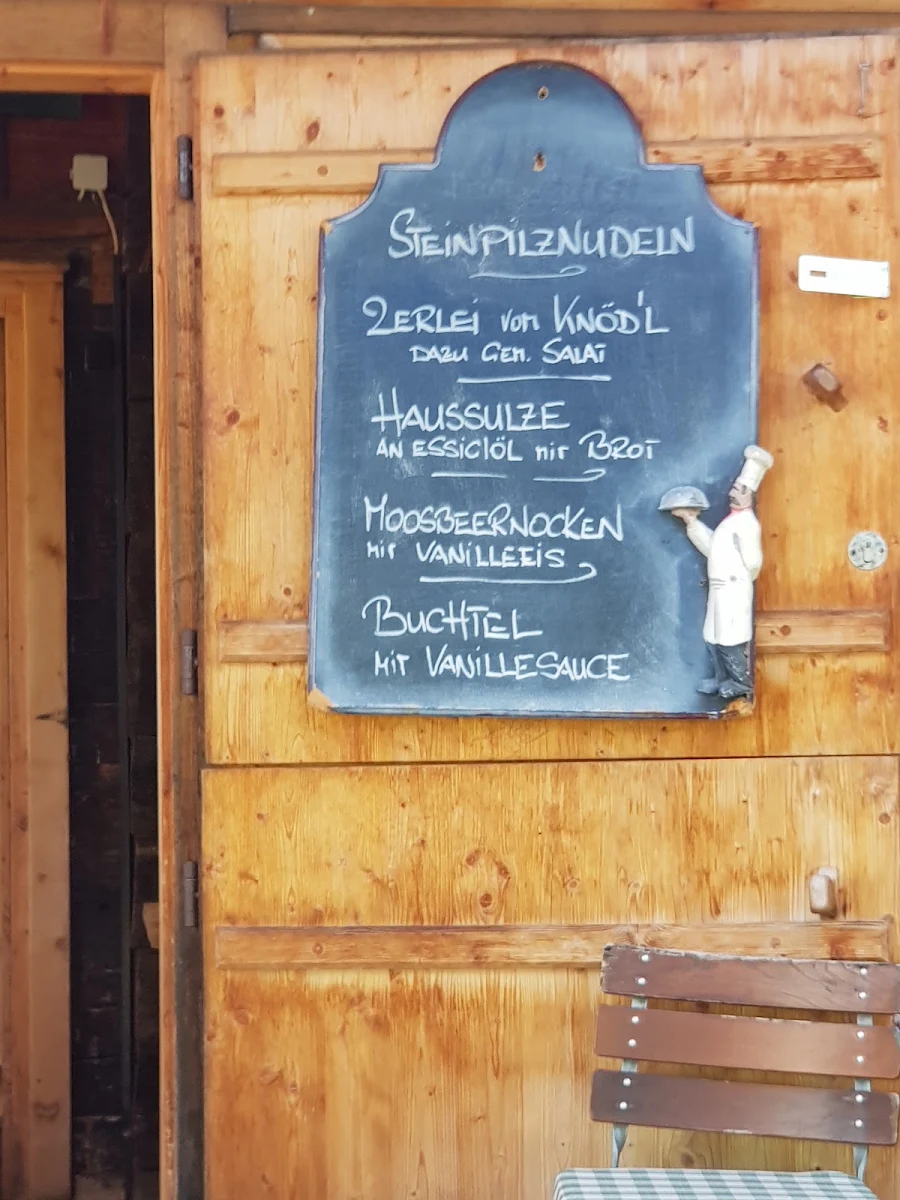 STEINPILZNUDELN
2ERLEI VOM KNÖD'L
DAZU GEM. SALAT
HAUSSULZE
AN ESSIGÖL MIT BROT
MOOSBEERNOCKEN
MIT VANILLEEIS
BUCHTEL
MIT VANILLESAUCE